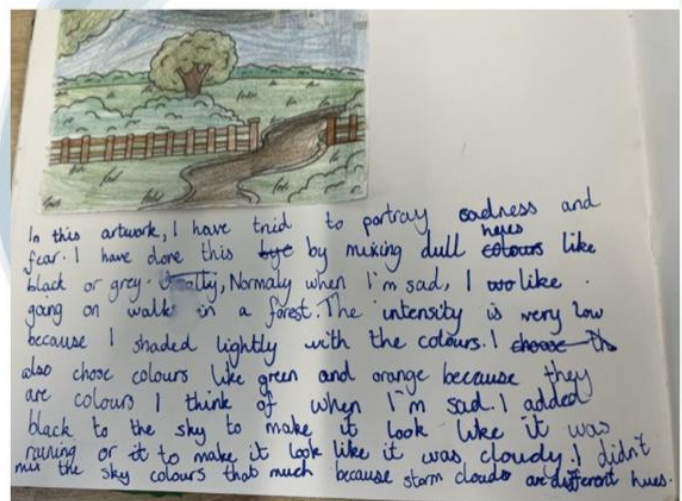 In this artwork, I have tried to portray sadness and
fear. I have done this bye by mixing dull colours hues like
black or grey. Usually, Normaly when I'm sad, I like
going on walk in a forest. The intensity is very low
because I shaded lightly with the colours. I choose th
also chose colours like green and orange because they
are colours I think of when I'm sad. I added
black to the sky to make it look like it was
raining or it to make it look like it was cloudy. I didn't
mix the sky colours that much because storm clouds are different hues.